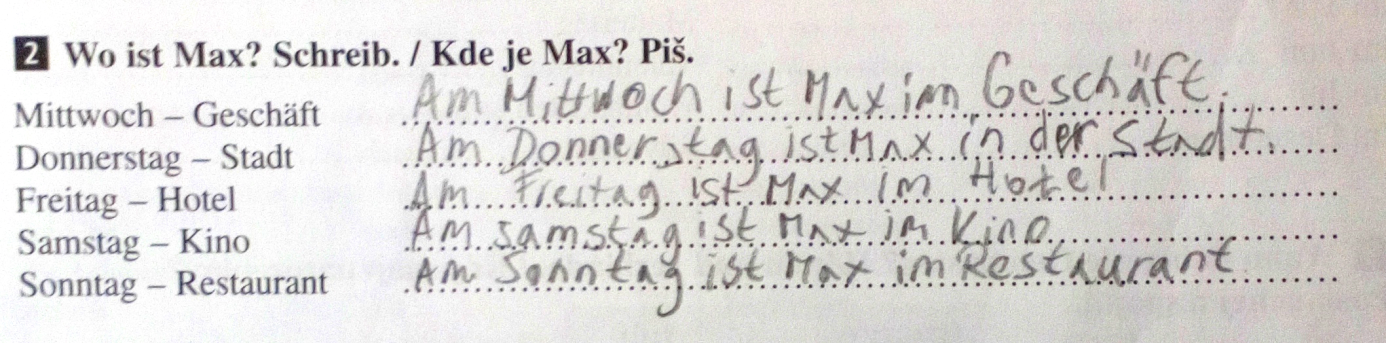 2 Wo ist Max? Schreib. / Kde je Max? Piš.
Mittwoch – Geschäft Am Mittwoch ist Max im Geschäft.
Donnerstag – Stadt Am Donnerstag ist Max in der Stadt.
Freitag – Hotel Am Freitag ist Max im Hotel
Samstag – Kino Am samstag ist Max im Kino
Sonntag – Restaurant Am Sonntag ist Max im Restaurant